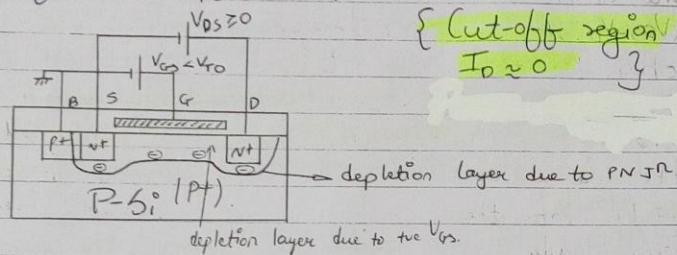 V_DS ≥ 0
{ Cut-off region
I_D ≃ 0 }
V_GS < V_TO
B S G D
P+ n+ N+
⊖ ⊖ ⊖ ⊖
depletion layer due to PN Jⁿ
P-Si (P+)
depletion layer due to +ve V_GS.